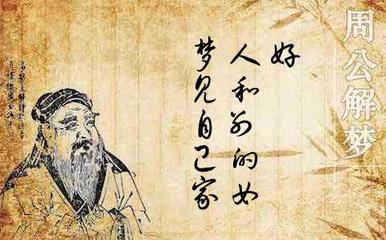 周公解梦
梦见自己家
人和别的女
好